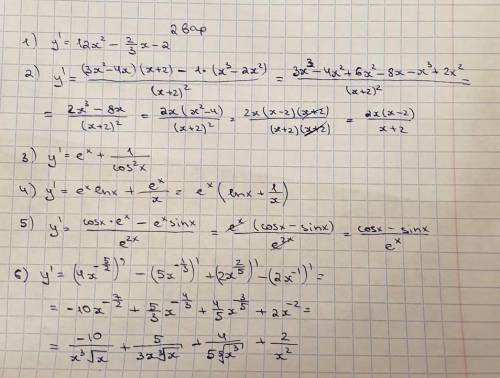 2 вар
1) y' = 12x² - 2/3 x - 2
2) y' = ((3x²-4x)(x+2) - 1·(x³-2x²))/(x+2)² = (3x³-4x²+6x²-8x-x³+2x²)/(x+2)² =
= (2x³-8x)/(x+2)² = 2x(x²-4)/(x+2)² = 2x(x-2)(x+2)/((x+2)(x+2)) = 2x(x-2)/(x+2)
3) y' = eˣ + 1/cos²x
4) y' = eˣ lnx + eˣ/x = eˣ (lnx + 1/x)
5) y' = (cosx·eˣ - eˣ sinx)/e²ˣ = eˣ (cosx - sinx)/e²ˣ = (cosx - sinx)/eˣ
6) y' = (4x^(-5/2))' - (5x^(-1/3))' + (2x^(2/5))' - (2x⁻¹)' =
= -10x^(-7/2) + 5/3 x^(-4/3) + 4/5 x^(-3/5) + 2x⁻² =
= -10/(x³√x) + 5/(3x∛x) + 4/(5 ⁵√x³) + 2/x²